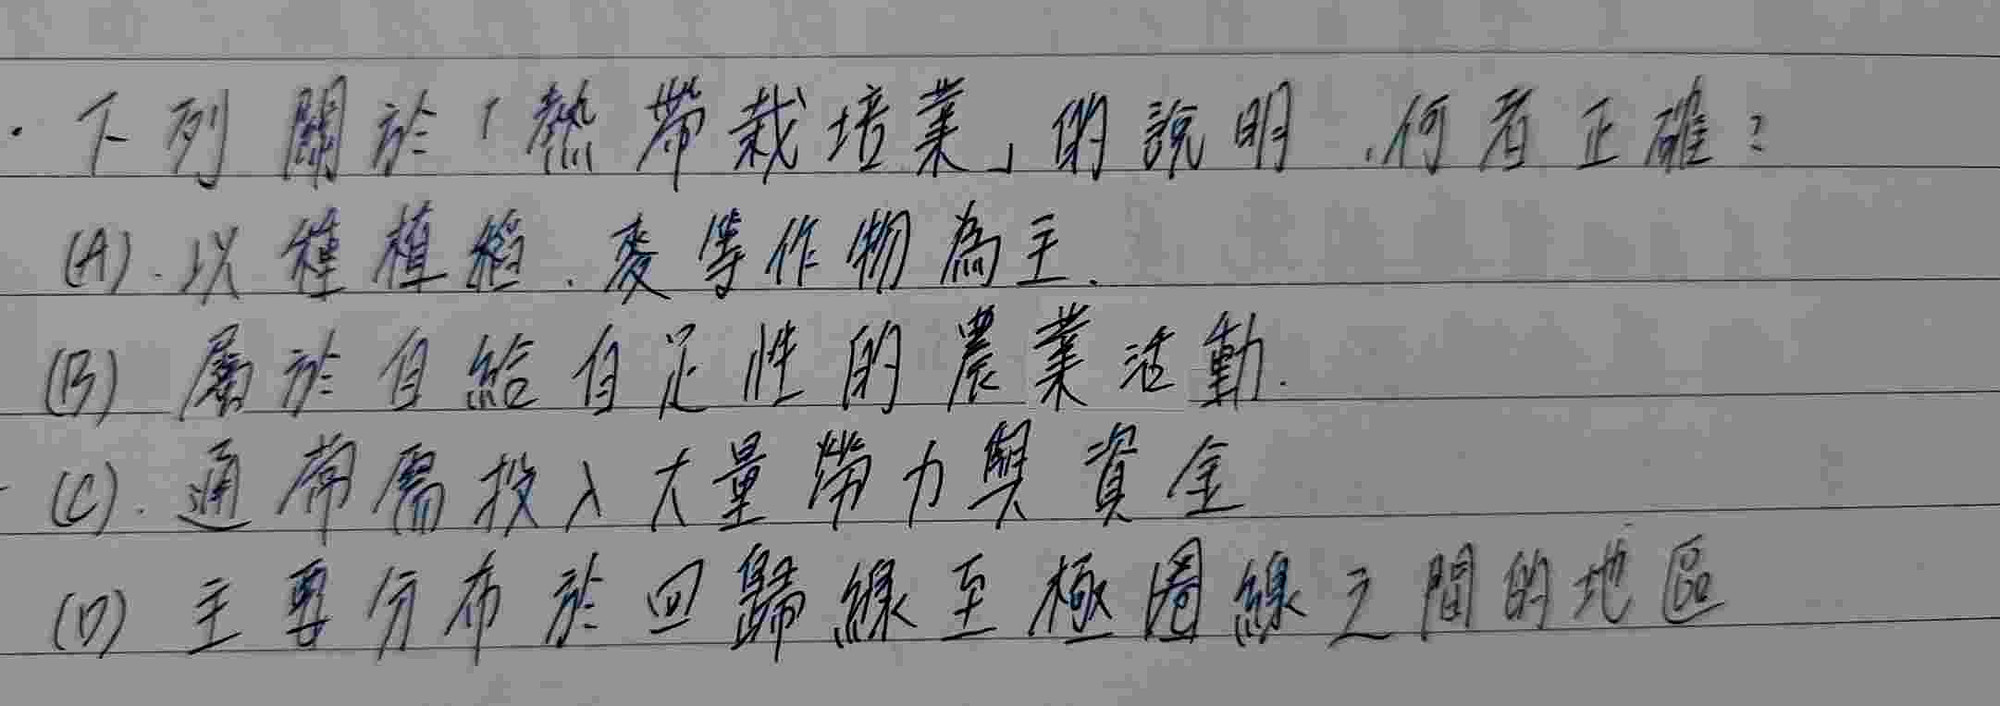 · 下列關於「熱帶栽培業」的說明，何者正確？
(A). 以種植稻、麥等作物為主.
(B) 屬於自給自足性的農業活動.
(C). 通常需投入大量勞力與資金
(D) 主要分布於回歸線至極圈線之間的地區